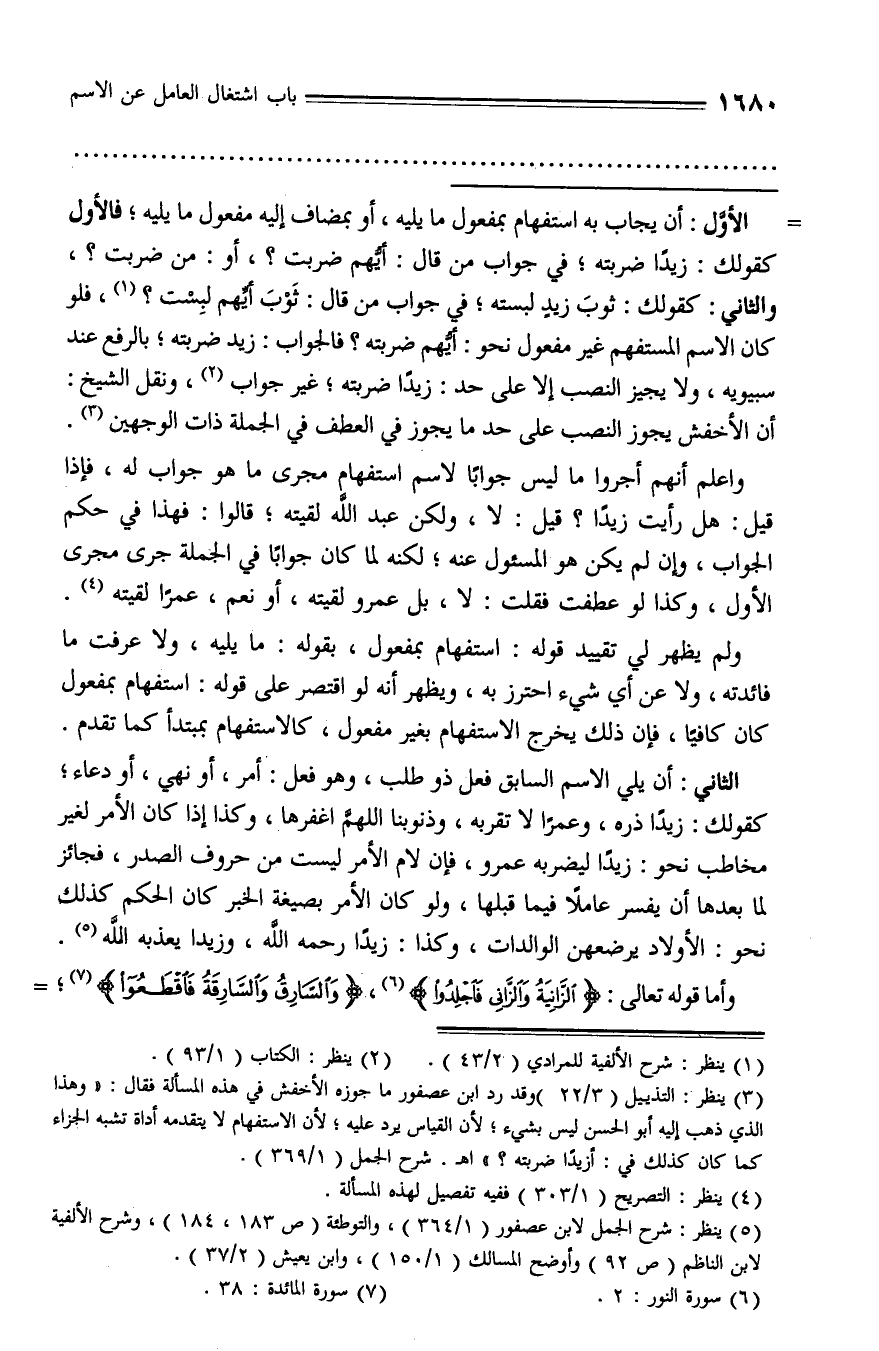 ١٦٨٠ باب اشتغال العامل عن الاسم
................................................................................
= الأوَّل : أن يجاب به استفهام بمفعول ما يليه ، أو بمضاف إليه مفعول ما يليه ؛ فالأول
كقولك : زيدًا ضربته ؛ في جواب من قال : أيُّهم ضربت ؟ ، أو : من ضربت ؟ ،
والثاني : كقولك : ثوبَ زيدٍ لبسته ؛ في جواب من قال : ثَوْبَ أيِّهم لبِسْت ؟ (١) ، فلو
كان الاسم المستفهم غير مفعول نحو : أيُّهم ضربته ؟ فالجواب : زيد ضربته ؛ بالرفع عند
سيبويه ، ولا يجيز النصب إلا على حد : زيدًا ضربته ؛ غير جواب (٢) ، ونقل الشيخ :
أن الأخفش يجوز النصب على حد ما يجوز في العطف في الجملة ذات الوجهين (٣) .
واعلم أنهم أجروا ما ليس جوابًا لاسم استفهام مجرى ما هو جواب له ، فإذا
قيل : هل رأيت زيدًا ؟ قيل : لا ، ولكن عبد اللَّه لقيته ؛ قالوا : فهذا في حكم
الجواب ، وإن لم يكن هو المسئول عنه ؛ لكنه لما كان جوابًا في الجملة جرى مجرى
الأول ، وكذا لو عطفت فقلت : لا ، بل عمرو لقيته ، أو نعم ، عمرًا لقيته (٤) .
ولم يظهر لي تقييد قوله : استفهام بمفعول ، بقوله : ما يليه ، ولا عرفت ما
فائدته ، ولا عن أي شيء احترز به ، ويظهر أنه لو اقتصر على قوله : استفهام بمفعول
كان كافيًا ، فإن ذلك يخرج الاستفهام بغير مفعول ، كالاستفهام بمبتدأ كما تقدم .
الثاني : أن يلي الاسم السابق فعل ذو طلب ، وهو فعل : أمر ، أو نهي ، أو دعاء ؛
كقولك : زيدًا ذره ، وعمرًا لا تقربه ، وذنوبنا اللهمَّ اغفرها ، وكذا إذا كان الأمر لغير
مخاطب نحو : زيدًا ليضربه عمرو ، فإن لام الأمر ليست من حروف الصدر ، فجائز
لما بعدها أن يفسر عاملًا فيما قبلها ، ولو كان الأمر بصيغة الخبر كان الحكم كذلك
نحو : الأولاد يرضعهن الوالدات ، وكذا : زيدًا رحمه اللَّه ، وزيدا يعذبه اللَّه (٥) .
وأما قوله تعالى : ﴿ ٱلزَّانِيَةُ وَٱلزَّانِي فَٱجْلِدُوا۟ ﴾ (٦) ، ﴿ وَٱلسَّارِقُ وَٱلسَّارِقَةُ فَٱقْطَعُوٓا۟ ﴾ (٧) ؛ =
(١) ينظر : شرح الألفية للمرادي ( ٤٣/٢ ) . (٢) ينظر : الكتاب ( ٩٣/١ ) .
(٣) ينظر : التذييل ( ٢٢/٣ )وقد رد ابن عصفور ما جوزه الأخفش في هذه المسألة فقال : « وهذا
الذي ذهب إليه أبو الحسن ليس بشيء ؛ لأن القياس يرد عليه ؛ لأن الاستفهام لا يتقدمه أداة تشبه الجزاء
كما كان كذلك في : أزيدًا ضربته ؟ » اهـ . شرح الجمل ( ٣٦٩/١ ) .
(٤) ينظر : التصريح ( ٣٠٣/١ ) ففيه تفصيل لهذه المسألة .
(٥) ينظر : شرح الجمل لابن عصفور ( ٣٦٤/١ ) ، والتوطئة ( ص ١٨٣ ، ١٨٤ ) ، وشرح الألفية
لابن الناظم ( ص ٩٢ ) وأوضح المسالك ( ١٥٠/١ ) ، وابن يعيش ( ٣٧/٢ ) .
(٦) سورة النور : ٢ . (٧) سورة المائدة : ٣٨ .